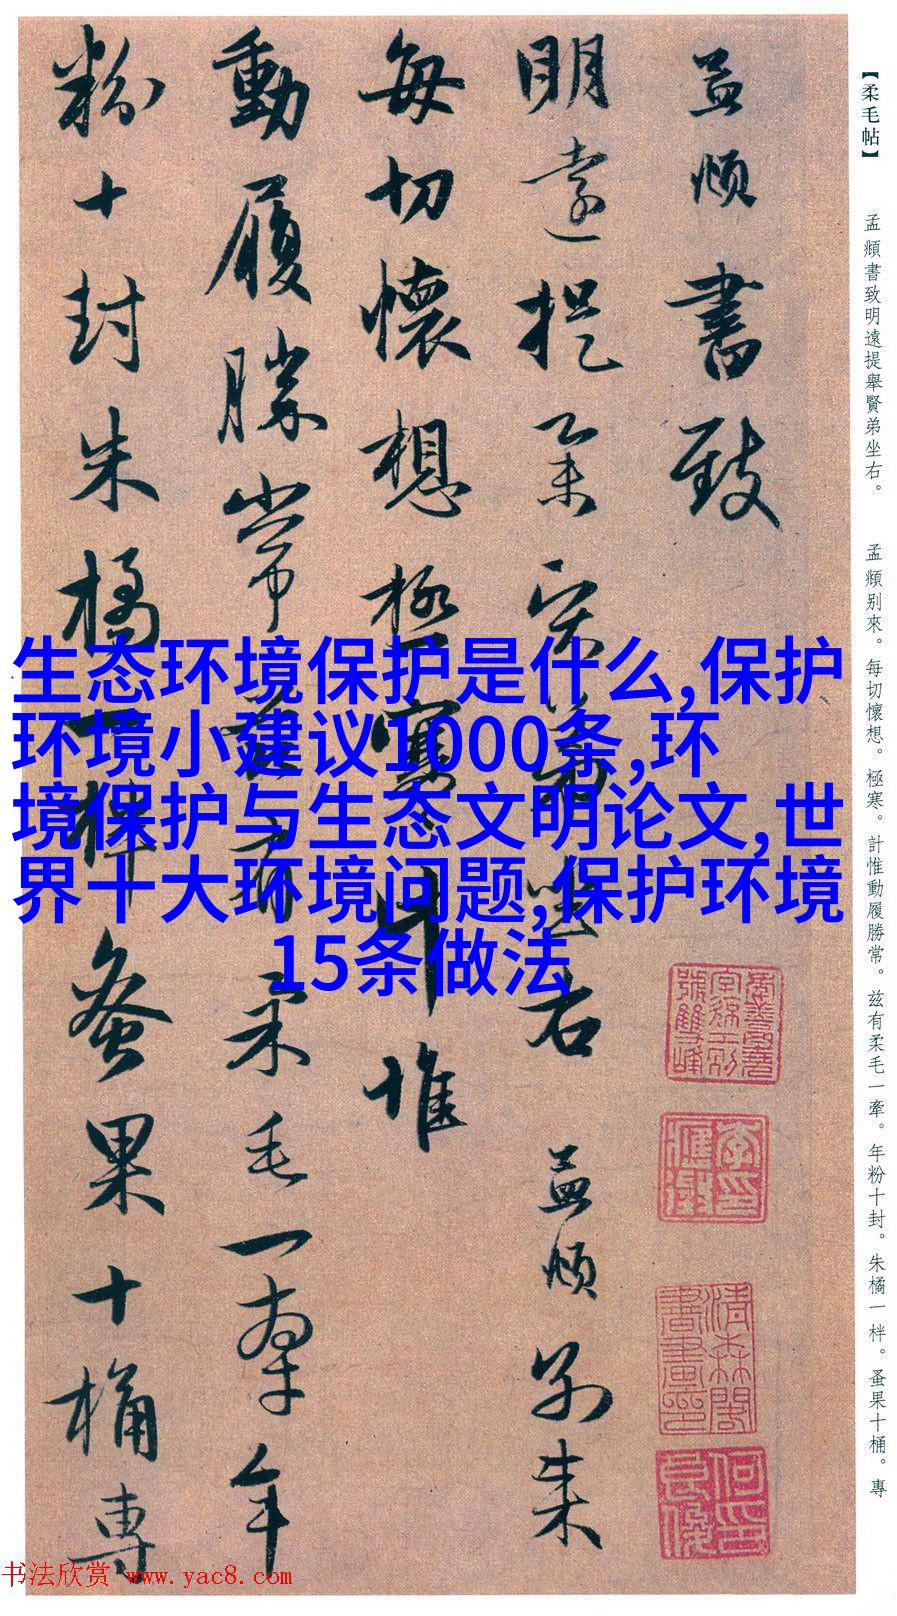 【柔毛帖】
孟頫書致明遠提舉賢弟坐右。
孟頫别來。每切懷想。極寒。計惟動履勝常。兹有柔毛一牽。年粉十封。朱橘一柈。蚤果十桶。專
孟頫書致
明遠提舉賢弟坐右 孟頫别來
每切懷想極寒計惟
動履勝常兹有柔毛一牽年
粉十封朱橘一柈蚤果十桶專
生态环境保护是什么,保护
环境小建议1000条,环
境保护与生态文明论文,世
界十大环境问题,保护环境
15条做法
书法欣赏 www.yac8.com